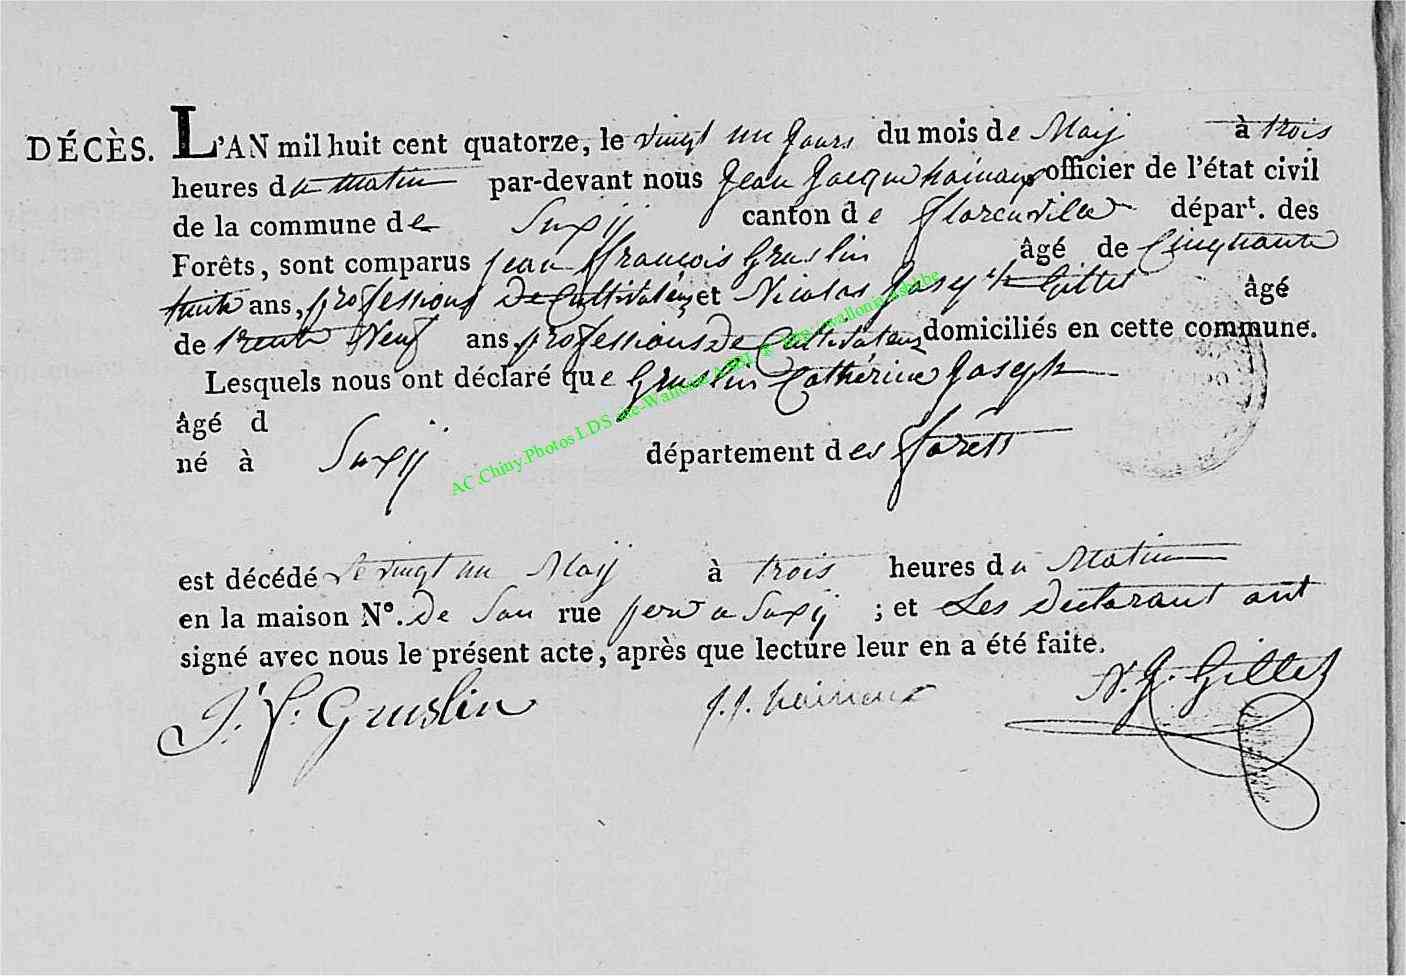 DÉCÈS. L'AN mil huit cent quatorze, le vingt un Jours du mois de Maij à trois
heures du matin par-devant nous Jean Jacque hainaux officier de l'état civil
de la commune de Suxij canton de florenville départ. des
Forêts, sont comparus jean ffrancois Gruslin âgé de Cinquante
huite ans, professions De Cultivateur et Nicolas Joseph Gillet âgé
de trente Neuf ans, professions De Cultivateur domiciliés en cette commune.
Lesquels nous ont déclaré que Gruslin Cathérine Joseph
âgé d
né à Suxij département des forêts
est décédé le vingt un Maij à trois heures du Matin
en la maison N°. De Son rue pere a Suxij ; et Les Declarant ont
signé avec nous le présent acte, après que lecture leur en a été faite.
J. f. Gruslin j. j. hainaux N. J. Gillet
AC.Chiny.Photos LDS